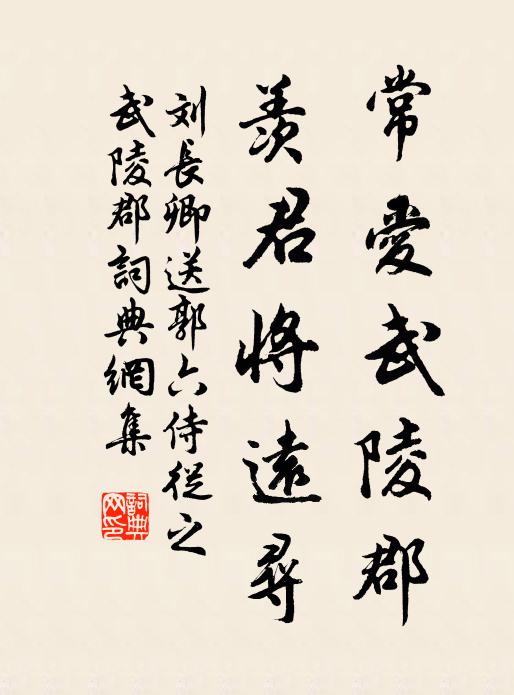 常愛武陵郡
羨君將遠尋
刘長卿送郭六侍從之
武陵郡詞典網集
詞典
网印